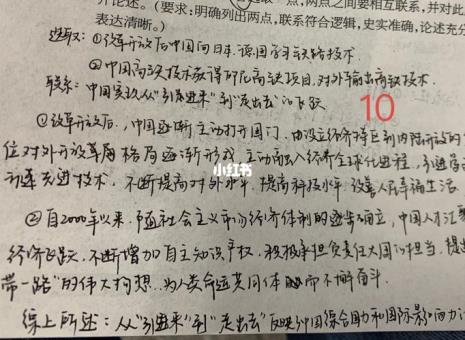 开论述。(要求:明确列出两点,两点之间要相互联系,并对此
表达清晰。)
选取:①改革开放后中国向日本、德国学习高铁技术
②中国高铁技术获得印尼高铁项目,对外输出高铁技术.
联系:中国实现从“引进来”到“走出去”的飞跃
10
①改革开放后,中国逐渐主动打开国门,由设立经济特区到内陆开放的
位对外开放格局逐渐形成,主动融入经济全球化进程,引进
先进技术,不断提高对外水平,提高科技水平,改善人民幸福生活
小红书
②自2000年以来,随社会主义市场经济体制的逐步确立,中国人才汇
经济飞跃,不断增加自主知识产权,积极承担负责任大国的担当,提出
带一路”的伟大构想,为人类命运共同体而不懈奋斗.
综上所述:从“引进来”到“走出去”反映中国综合国力和国际影响力